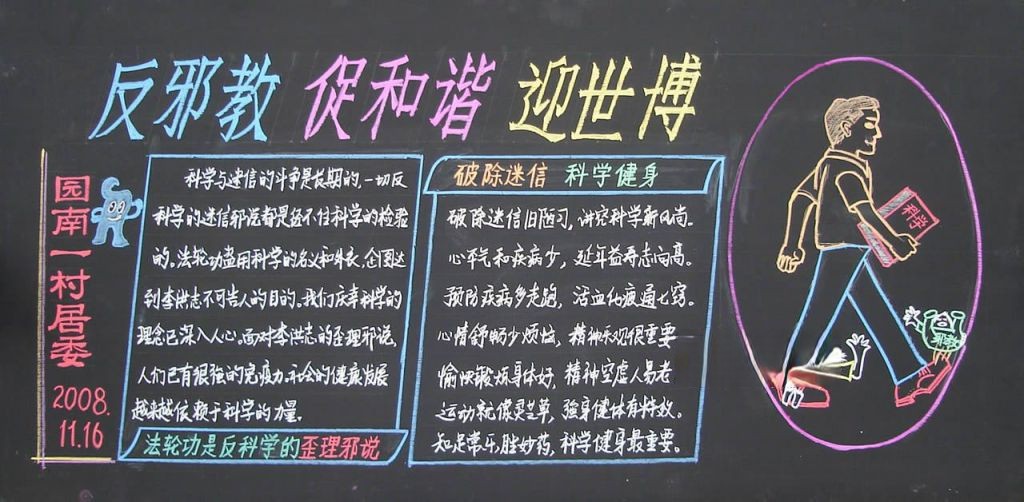 反邪教 促和谐 迎世博
园南一村居委
2008.
11.16
科学与迷信的斗争是长期的,一切反
科学的迷信邪说都是经不住科学的检验
的。法轮功盗用科学的名义和外衣,企图达
到李洪志不可告人的目的。我们庆幸科学的
理念已深入人心,面对李洪志的歪理邪说,
人们已有很强的免疫力,社会的健康发展
越来越依赖于科学的力量.
法轮功是反科学的歪理邪说
破除迷信 科学健身
破除迷信旧陋习,讲究科学新风尚。
心平气和疾病少,延年益寿志向高。
预防疾病多走跑,活血化瘀通七窍。
心情舒畅少烦恼,精神乐观很重要
愉快锻炼身体好,精神空虚人易老
运动就像灵芝草,强身健体有特效。
知足常乐胜妙药,科学健身最重要。
科学
邪教